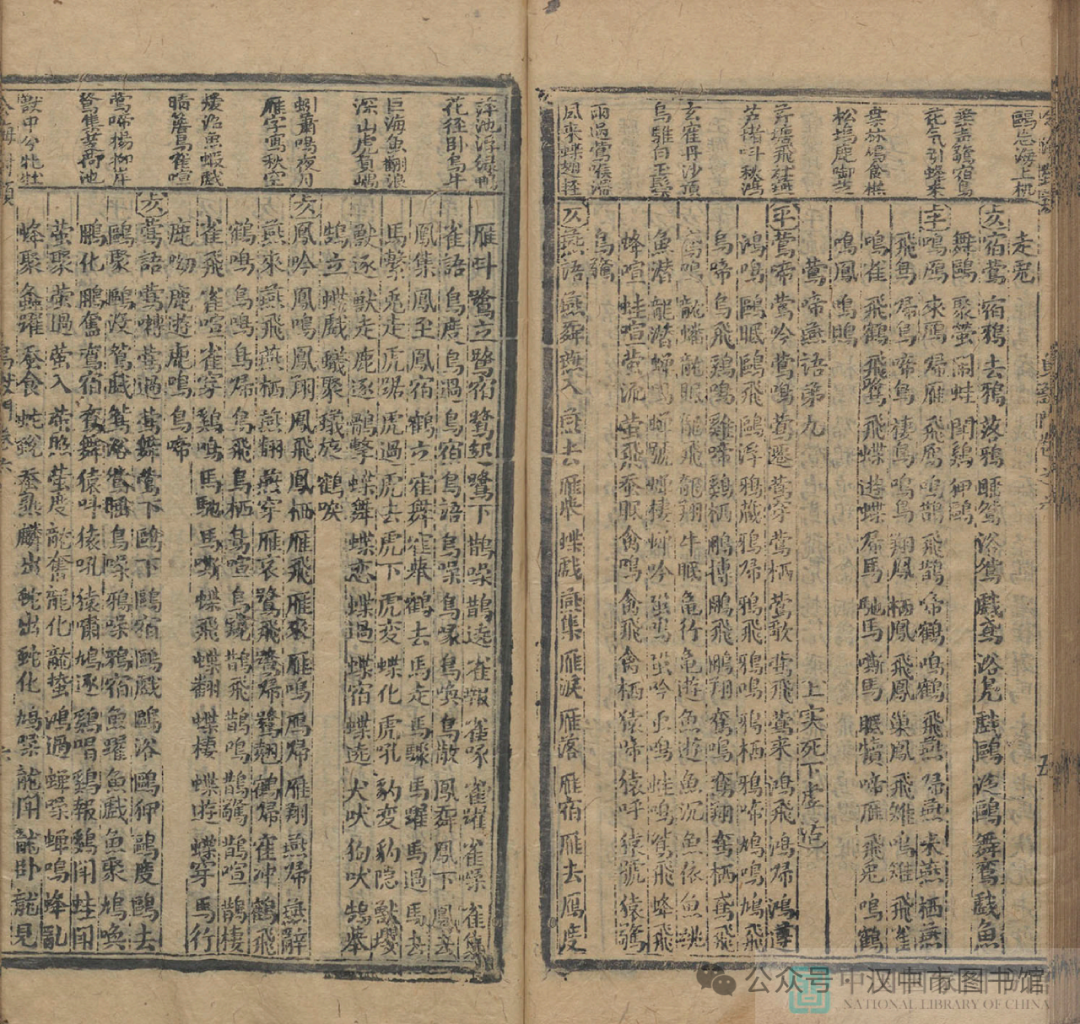 鷗忘海上机
花气引蜂来
雲林鳥食椹
松塢鹿啣芝
芦渚叫秋鴻
玄隺丹沙頂
烏騅白玉鬃
雨過鶯喉滑
風來蝶翅狂
走兎
宿鶯 宿鴉 去鴉 落鴉 睡鴛 浴鴛 戲鳶 浴鳧 戲鷗 泛鷗 舞鸞 戲魚
舞鷗 聚螢 鬧蛙 聞鷄 狎鷗
平 鳴鴈 來鴈 歸雁 飛鴈 鳴鵲 飛鵲 啼鶴 鳴鶴 飛燕 歸燕 來燕 栖燕
飛鳥 歸鳥 啼鳥 棲鳥 鳴鳥 翔鳳 栖鳳 飛鳳 巢鳳 飛雉 鳴雉 飛雀
鳴雀 飛鶴 飛鷺 飛蝶 遊蝶 歸馬 馳馬 嘶馬 眠犢 啼雁 飛兎 鳴鶴
鳴鳳 鳴鴟
鶯啼燕語第九 上实死下虚活
平 鶯啼 鶯吟 鶯鳴 鶯遷 鶯穿 鶯栖 鶯歌 鶯飛 鶯來 鴻飛 鴻歸 鴻賓
鴻鳴 鷗眠 鷗飛 鷗浮 鴉藏 鴉歸 鴉飛 鴉鳴 鴉栖 鴉啼 鳩鳴 鳩飛
烏啼 烏飛 雞鳴 雞啼 鷄栖 鵬搏 鵬飛 鵬翔 鸞鳴 鸞翔 鸞栖 鸞飛
鸞鳴 龍蟠 龍眠 龍飛 龍翔 牛眠 亀行 亀遊 魚遊 魚沉 魚依 魚跳
魚潛 龍潛
蜂喧 蛙喧 螢流 螢飛 蚕眠 禽鳴 禽飛 禽栖 猿啼 猿呼 猿號 猿驚
烏驚
仄 燕語 燕舞 燕入 燕去 雁唳 蝶戲 燕集 雁淚 雁落 雁宿 雁去 鴈度
洋池浮緑鴨
花徑卧烏牛
巨海魚翻浪
深山虎負嵎
蛩蕭鳴夜月
雁字寫秋空
煖沼魚蝦戲
晴簷鳥雀喧
鶯啼楊柳岸
鷺集芰荷池
獸中分牝牡
雁叫 鷺立 鷺宿 鷺起 鷺下 鵲噪 鵲遶 雀報 雀啄 雀躍 雀噪 雀集
雀語 鳥度 鳥過 鳥宿 鳥語 鳥噪 鳥啄 鳥喚 鳥散 鳳舞 鳳下 鳳去
鳳集 鳳至 鳳宿 鶴立 隺舞 隺舉 鶴去 馬走 馬驟 馬躍 馬過 馬去
馬繫 兎走 虎踞 虎過 虎去 虎下 虎变 蝶化 虎吼 豹变 豹隐 獸攖
獸逐 獸走 鹿逐 鶻擊 蝶舞 蝶恋 蝶過 蝶宿 蝶遶 犬吠 狗吠 鵠舉
鵠立 蝶戲 蟻聚 蟻旋 鶴唳
鳳吟 鳳鳴 鳳翔 鳳飛 鳳栖 雁飛 雁來 雁鳴 鴈歸 雁翔 燕歸 燕辭
燕來 燕飛 燕栖 燕翻 燕穿 雁哀 鷺飛 鷺歸 鷺翹 鶴歸 隺冲 鶴飛
鶴鳴 鳥鳴 鳥歸 鳥飛 鳥栖 鳥喧 鳥窺 鵲飛 鵲鳴 鵲驚 鵲喧 鵲棲
雀飛 雀喧 雀穿 鷄鳴 馬馳 馬嘶 蝶飛 蝶翻 蝶棲 蝶遊 蝶穿 馬行
鹿呦 鹿遊 鹿鳴 鳥啼
鶯語 鶯囀 鶯過 鶯舞 鶯下 鷗下 鷗宿 鷗戲 鷗浴 鷗狎 鷗度 鷗去
鷗聚 鷗没 鴛戲 鴛浴 鴛睡 鳥噪 鴉噪 鴉宿 魚躍 魚戲 魚聚 鳩喚
鵬化 鵬奮 鸞宿 鸞舞 猿叫 猿吼 猿嘯 鳩逐 鷄唱 鷄報 鷄鬧 蛙鬧
螢聚 螢過 螢入 螢照 螢度 龍奮 龍化 龍蟄 鴻過 蟬噪 蟬鳴 蜂亂
蜂聚 魚躍 蚕食 蛇蛻 蚕熟 麟出 蛇出 蛇化 鳩噪 龍鬥 龍卧 龍見
公众号·中汉中市图书馆
NATIONAL LIBRARY OF CHINA